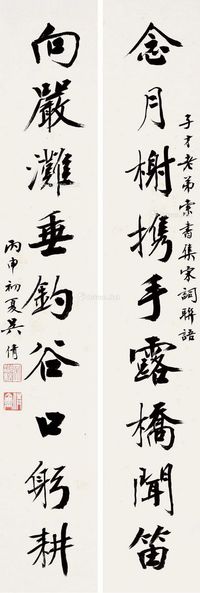 念月榭携手露橋聞笛
子才老弟索書集宋詞聯語
向嚴灘垂釣谷口躬耕
丙申初夏吳倩